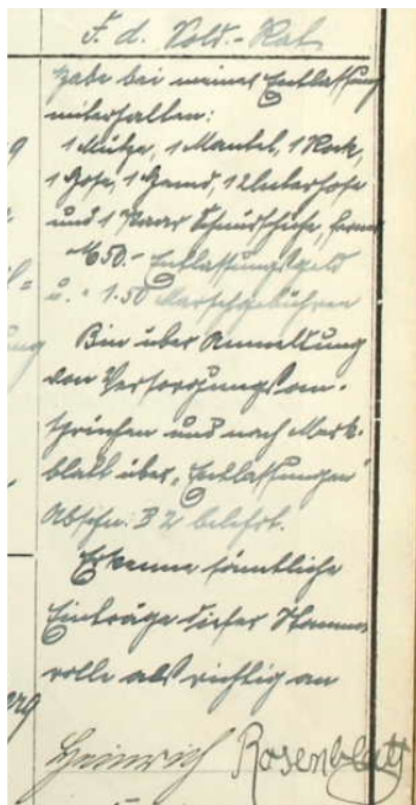 F. d. Sold.-Rat
Habe bei meiner Entlassung
miterhalten:
1 Mütze, 1 Mantel, 1 Rock,
1 Hose, 1 Hemd, 1 Unterhose
und 1 Paar Schnürschuhe, ferner
M 50.- Entlassungsgeld
u. " 1.50 Marschgebühren
Bin über Anmeldung
von Versorgungsan-
sprüchen und nach Merk-
blatt über „Entlassungen"
Abschn. B 2 belehrt.
Erkenne sämtliche
Einträge dieser Stamm-
rolle als richtig an
Heinrich Rosenblatt